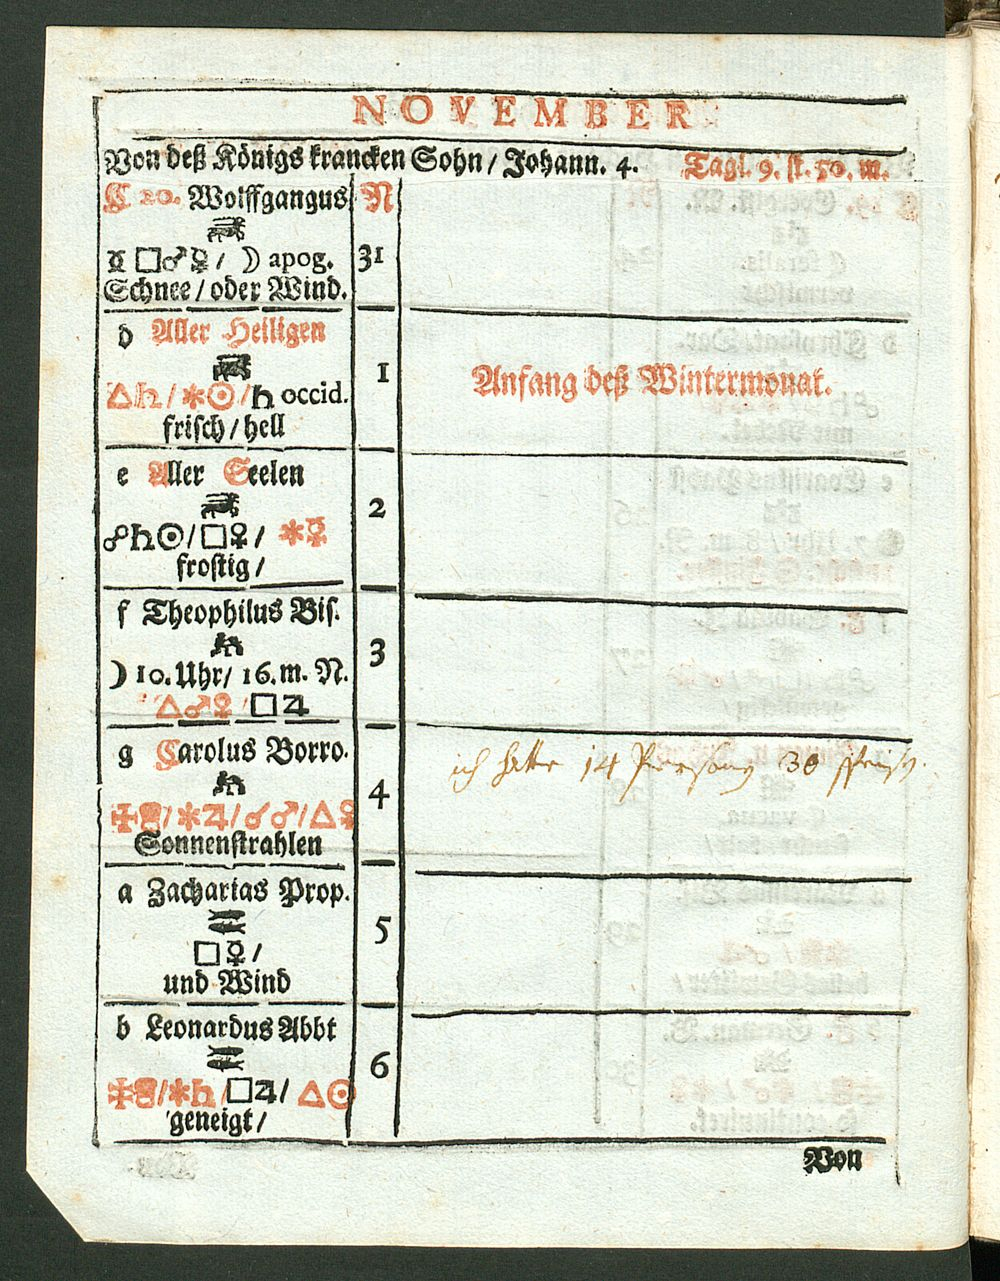 NOVEMBER
Von deß Königs krancken Sohn / Johann. 4. Tagl. 9. st. 50. m.
C 20. Wolffgangus N
☿ □♂☿ / ☽ apog. 31
Schnee / oder Wind.
d Aller Heiligen
△♄ / ✶☉ / ♄ occid. 1 Anfang deß Wintermonat.
frisch / hell
e Aller Seelen
☍♄☉ / □♀ / ✶☿ 2
frostig /
f Theophilus Bis.
☽ 10. Uhr / 16. m. N. 3
△♂♀ / □♃
g Carolus Borro. ich hatte 14 30
/ ✶♃ / ☌♂ / △♀ 4
Sonnenstrahlen
a Zacharias Prop.
□☿ / 5
und Wind
b Leonardus Abbt
/ ✶♄ / □♃ / △☉ 6
geneigt /
Von